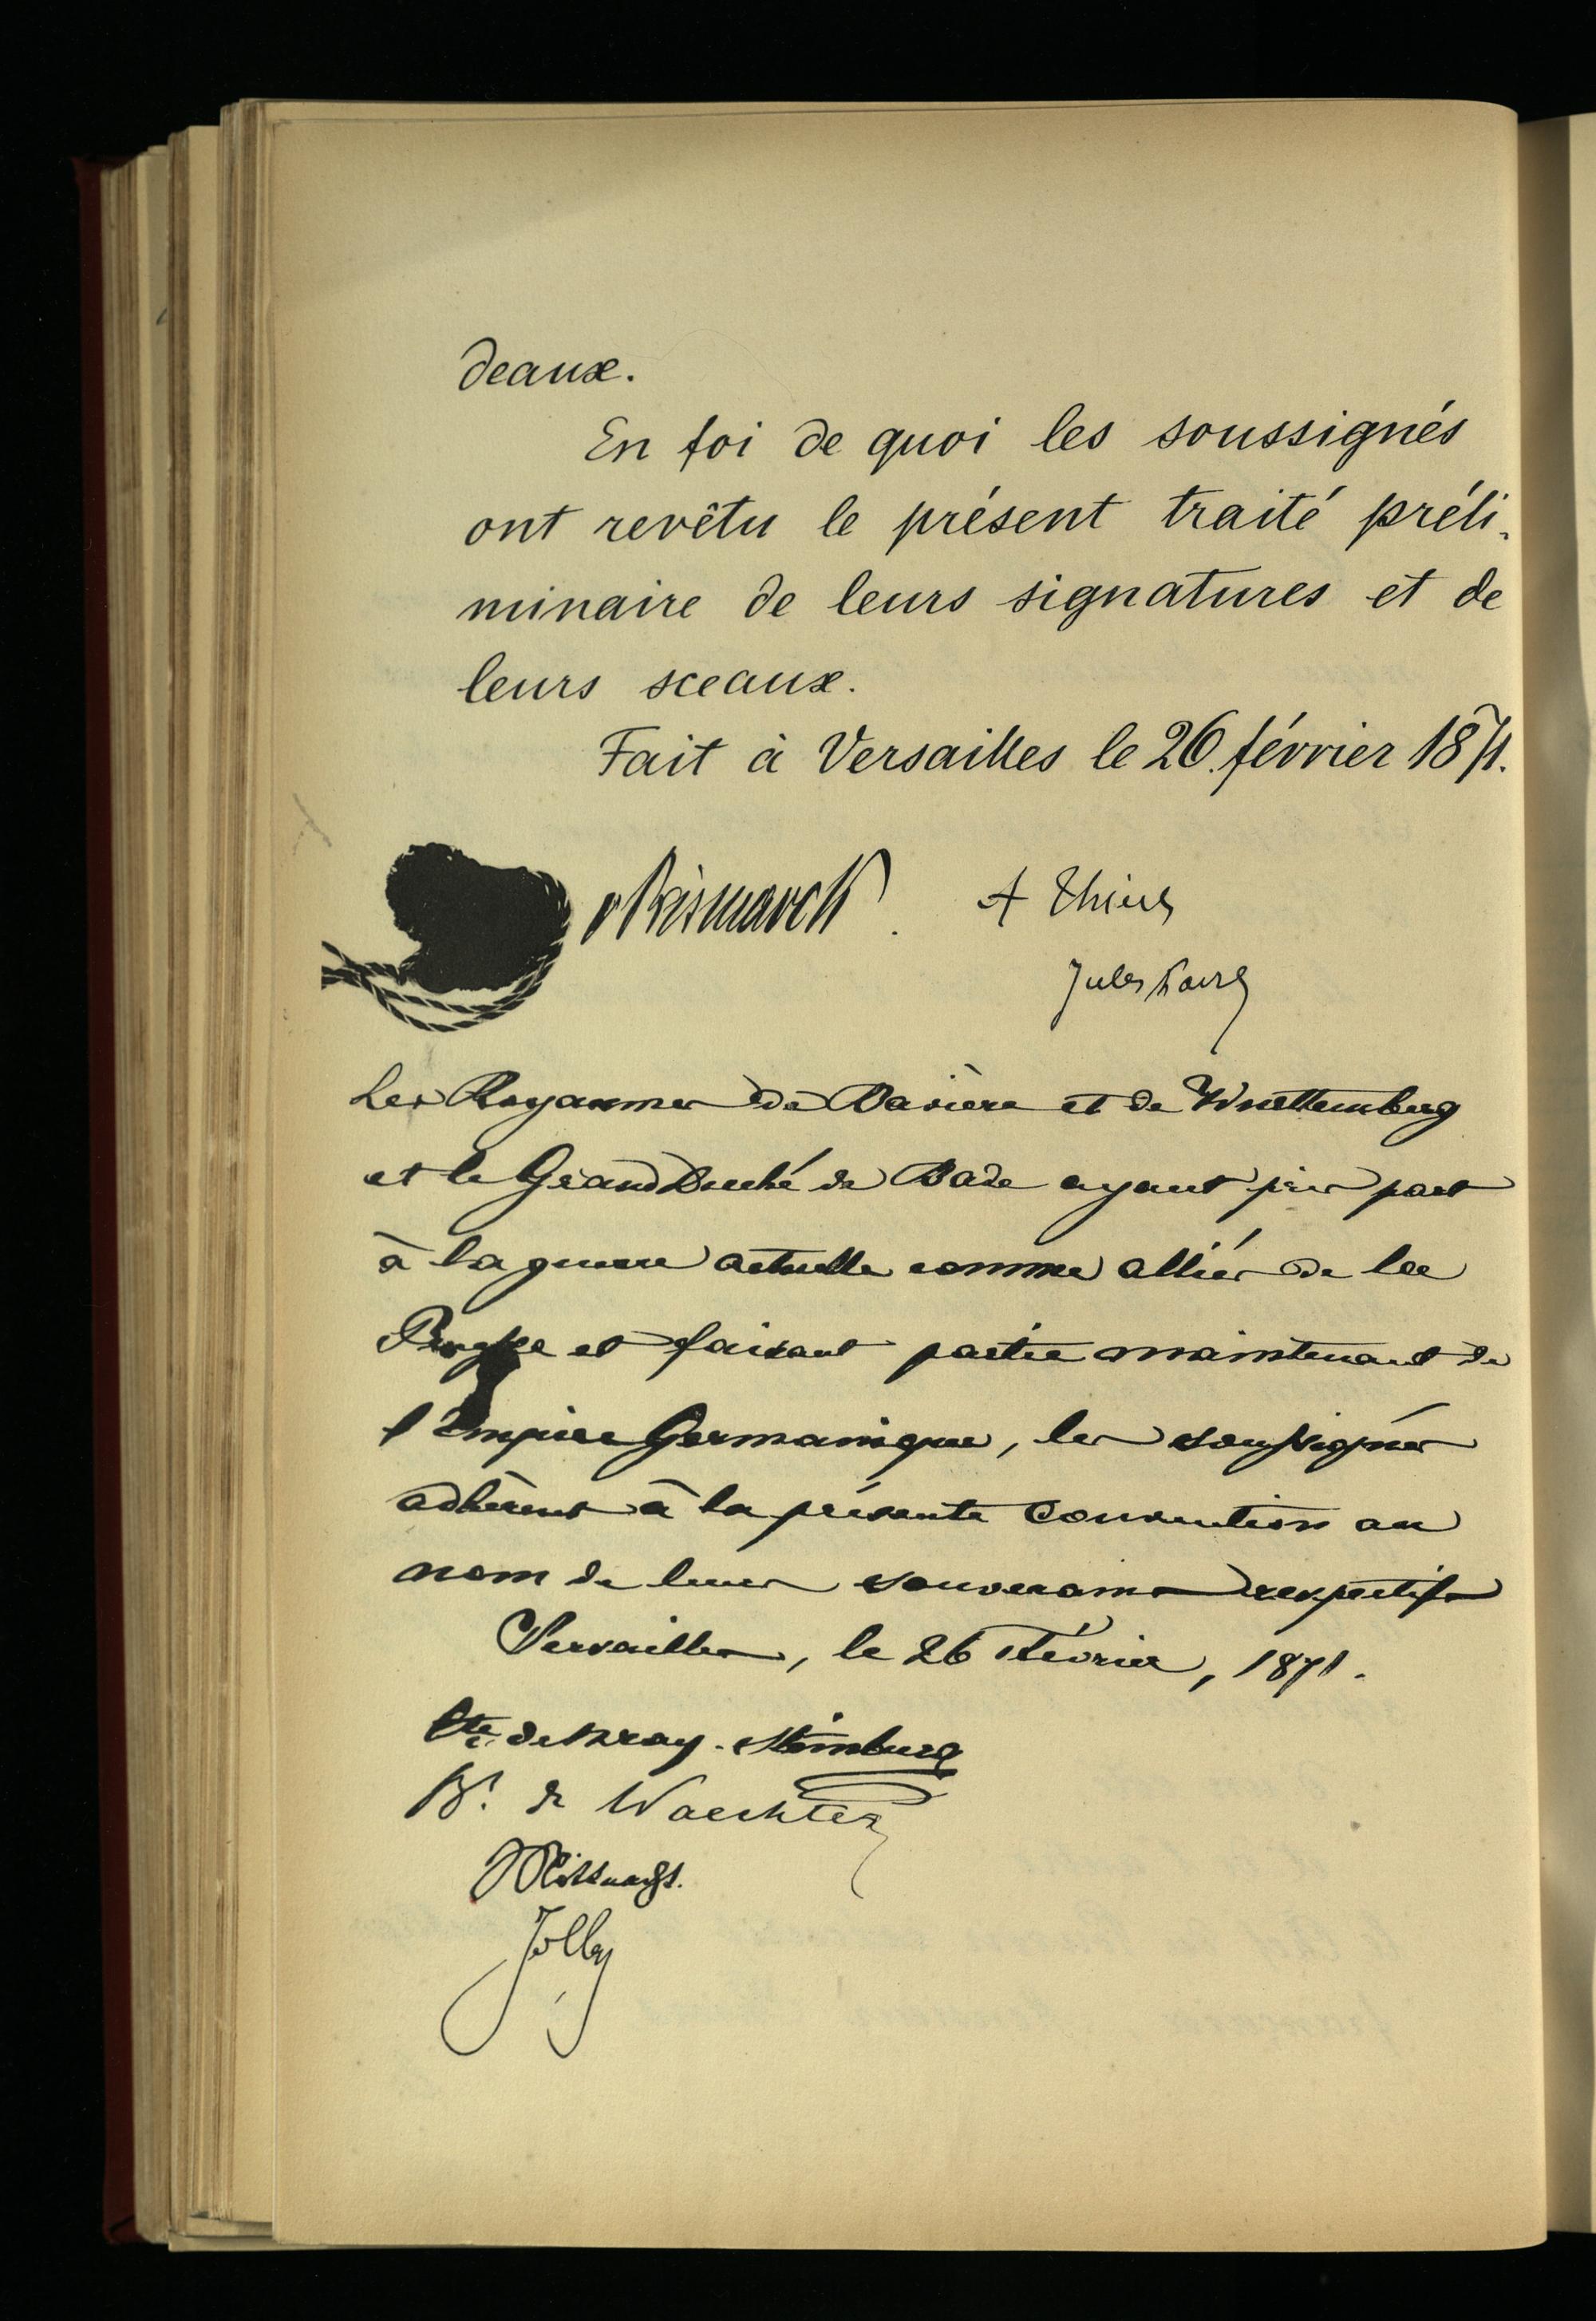 deaux.
En foi de quoi les soussignés
ont revêtu le présent traité préli-
minaire de leurs signatures et de
leurs sceaux.
Fait à Versailles le 26 février 1871.
v Bismarck. A Thiers
Jules Favre
Les Royaumes de Bavière et de Wurttemberg
et le Grand Duché de Bade ayant pris part
à la guerre actuelle comme alliés de la
Prusse et faisant partie maintenant de
l'Empire Germanique, les soussignés
adhèrent à la présente convention au
nom de leurs souverains respectifs
Versailles, le 26 Février, 1871.
Cte de Bray-Steinburg
Bn. de Waechter
Mittnacht.
Jolly